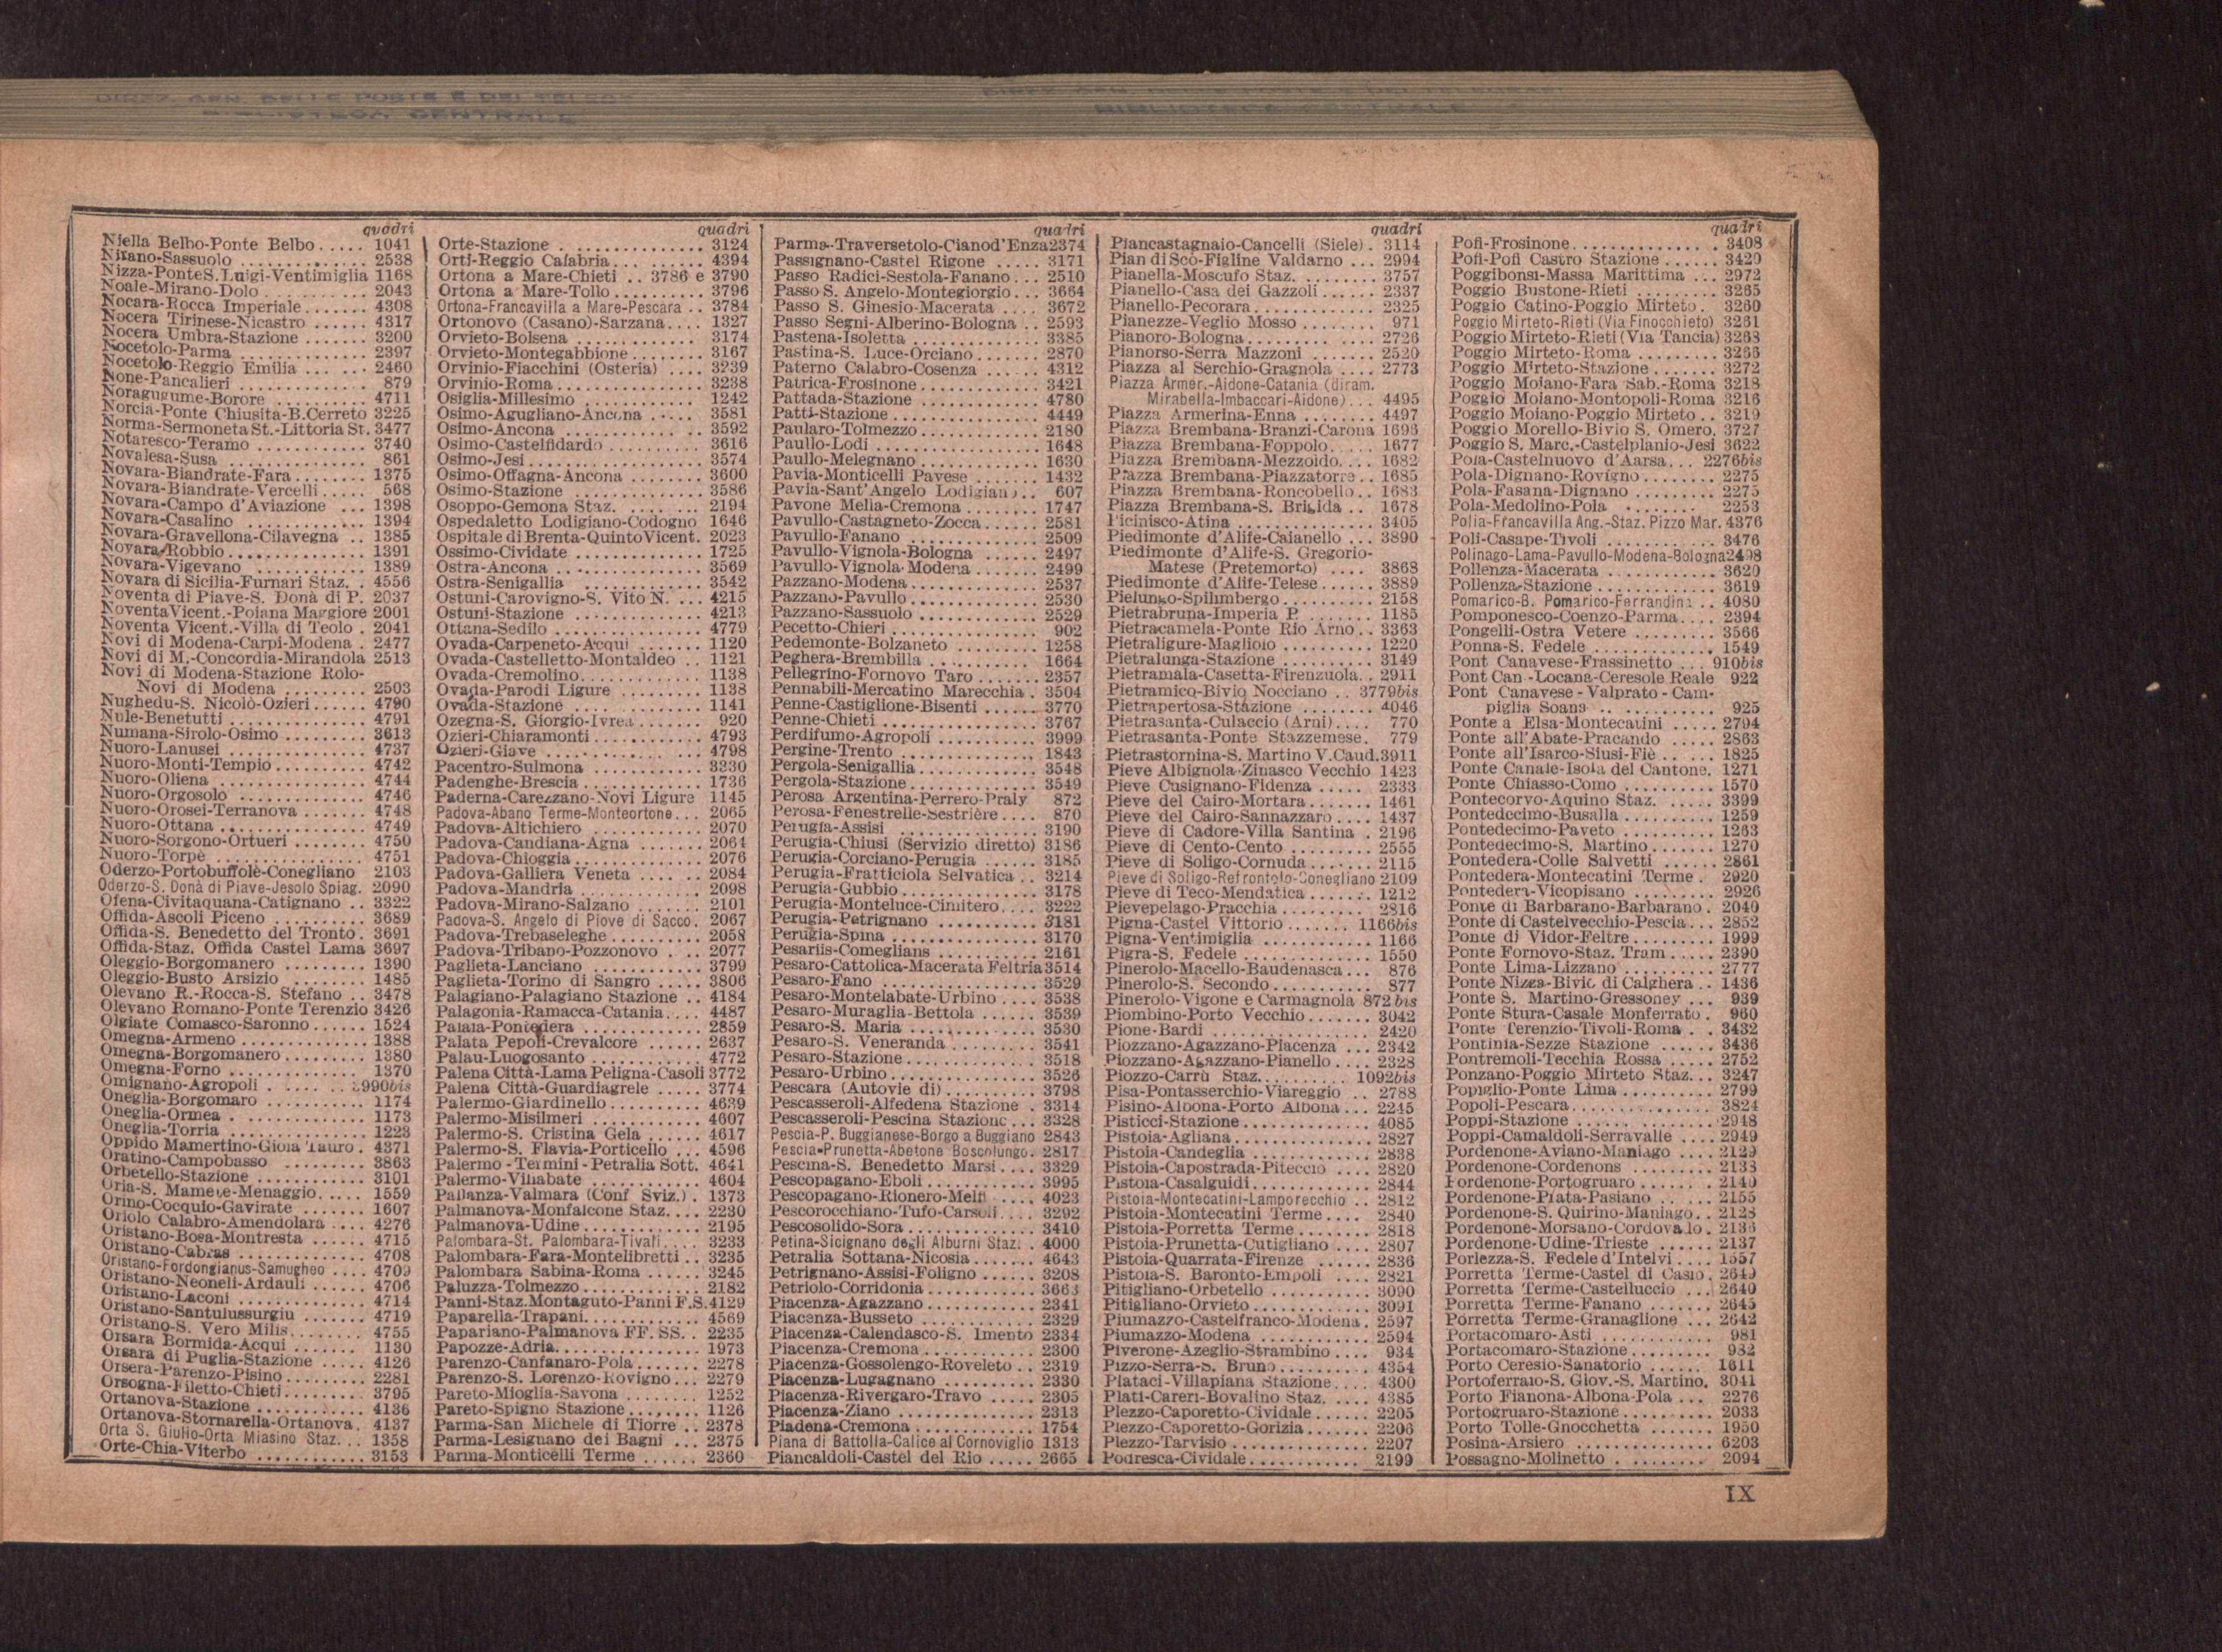 DIREZ. GEN. DELLE POSTE E DEI TELEG
BIBLIOTECA CENTRALE
BIBLIOTECA CENTRALE
quadri
Niella Belbo-Ponte Belbo ..... 1041
Nirano-Sassuolo ............. 2538
Nizza-Ponte S. Luigi-Ventimiglia 1168
Noale-Mirano-Dolo ........... 2043
Nocara-Rocca Imperiale ....... 4308
Nocera Tirinese-Nicastro ...... 4317
Nocera Umbra-Stazione ....... 3200
Nocetolo-Parma ............. 2397
Nocetolo-Reggio Emilia ...... 2460
None-Pancalieri ............. 879
Noragugume-Borore .......... 4711
Norcia-Ponte Chiusita-B.Cerreto 3225
Norma-Sermoneta St.-Littoria St. 3477
Notaresco-Teramo ............ 3740
Novalesa-Susa ............... 861
Novara-Biandrate-Fara ........ 1375
Novara-Biandrate-Vercelli ..... 568
Novara-Campo d'Aviazione ... 1398
Novara-Casalino ............. 1394
Novara-Gravellona-Cilavegna .. 1385
Novara-Robbio .............. 1391
Novara-Vigevano ............ 1389
Novara di Sicilia-Furnari Staz. . 4556
Noventa di Piave-S. Donà di P. 2037
Noventa Vicent.-Poiana Maggiore 2001
Noventa Vicent.-Villa di Teolo . 2041
Novi di Modena-Carpi-Modena . 2477
Novi di M.-Concordia-Mirandola 2513
Novi di Modena-Stazione Rolo-
Novi di Modena ......... 2503
Nughedu-S. Nicolò-Ozieri ...... 4790
Nule-Benetutti .............. 4791
Numana-Sirolo-Osimo ........ 3613
Nuoro-Lanusei .............. 4737
Nuoro-Monti-Tempio ......... 4742
Nuoro-Oliena ............... 4744
Nuoro-Orgosolo ............. 4746
Nuoro-Orosei-Terranova ...... 4748
Nuoro-Ottana ............... 4749
Nuoro-Sorgono-Ortueri ....... 4750
Nuoro-Torpè ................ 4751
Oderzo-Portobuffolè-Conegliano 2103
Oderzo-S. Donà di Piave-Jesolo Spiag. 2090
Ofena-Civitaquana-Catignano .. 3322
Offida-Ascoli Piceno ......... 3689
Offida-S. Benedetto del Tronto . 3691
Offida-Staz. Offida Castel Lama 3697
Oleggio-Borgomanero ......... 1390
Oleggio-Busto Arsizio ........ 1485
Olevano R.-Rocca-S. Stefano .. 3478
Olevano Romano-Ponte Terenzio 3426
Olgiate Comasco-Saronno ...... 1524
Omegna-Armeno ............. 1388
Omegna-Borgomanero ........ 1380
Omegna-Forno .............. 1370
Omignano-Agropoli ..... 3990bis
Oneglia-Borgomaro .......... 1174
Oneglia-Ormea .............. 1173
Oneglia-Torria .............. 1223
Oppido Mamertino-Gioia Tauro . 4371
Oratino-Campobasso ........ 3863
Orbetello-Stazione ........... 3101
Oria-S. Mamete-Menaggio ..... 1559
Orino-Cocquio-Gavirate ....... 1607
Oriolo Calabro-Amendolara .... 4276
Oristano-Bosa-Montresta ...... 4715
Oristano-Cabras ............. 4708
Oristano-Fordongianus-Samugheo .... 4709
Oristano-Neoneli-Ardauli ...... 4706
Oristano-Laconi ............. 4714
Oristano-Santulussurgiu ....... 4719
Oristano-S. Vero Milis ........ 4755
Orsara Bormida-Acqui ....... 1130
Orsara di Puglia-Stazione ..... 4126
Orsera-Parenzo-Pisino ........ 2281
Orsogna-Filetto-Chieti ........ 3795
Ortanova-Stazione ........... 4136
Ortanova-Stornarella-Ortanova . 4137
Orta S. Giulio-Orta Miasino Staz. .. 1358
Orte-Chia-Viterbo ............ 3153
quadri
Orte-Stazione ............... 3124
Orti-Reggio Calabria ......... 4394
Ortona a Mare-Chieti .. 3786 e 3790
Ortona a Mare-Tollo ......... 3796
Ortona-Francavilla a Mare-Pescara .. 3784
Ortonovo (Casano)-Sarzana .... 1327
Orvieto-Bolsena ............. 3174
Orvieto-Montegabbione ....... 3167
Orvinio-Fiacchini (Osteria) .... 3239
Orvinio-Roma ............... 3238
Osiglia-Millesimo ............ 1242
Osimo-Agugliano-Ancona ..... 3581
Osimo-Ancona .............. 3592
Osimo-Castelfidardo .......... 3616
Osimo-Jesi .................. 3574
Osimo-Offagna-Ancona ....... 3600
Osimo-Stazione ............. 3586
Osoppo-Gemona Staz. ....... 2194
Ospedaletto Lodigiano-Codogno 1646
Ospitale di Brenta-Quinto Vicent. 2023
Ossimo-Cividate ............. 1725
Ostra-Ancona ............... 3569
Ostra-Senigallia ............. 3542
Ostuni-Carovigno-S. Vito N. ... 4215
Ostuni-Stazione ............. 4213
Ottana-Sedilo ............... 4779
Ovada-Carpeneto-Acqui ...... 1120
Ovada-Castelletto-Montaldeo .. 1121
Ovada-Cremolino ............ 1138
Ovada-Parodi Ligure ......... 1138
Ovada-Stazione ............. 1141
Ozegna-S. Giorgio-Ivrea ....... 920
Ozieri-Chiaramonti ........... 4793
Ozieri-Giave ................ 4798
Pacentro-Sulmona ........... 3330
Padenghe-Brescia ............ 1736
Paderna-Carezzano-Novi Ligure 1145
Padova-Abano Terme-Monteortone ... 2065
Padova-Altichiero ............ 2070
Padova-Candiana-Agna ....... 2064
Padova-Chioggia ............. 2076
Padova-Galliera Veneta ....... 2084
Padova-Mandria ............. 2098
Padova-Mirano-Salzano ....... 2101
Padova-S. Angelo di Piove di Sacco. 2067
Padova-Trebaseleghe ......... 2058
Padova-Tribano-Pozzonovo .... 2077
Paglieta-Lanciano ............ 3799
Paglieta-Torino di Sangro ..... 3806
Palagiano-Palagiano Stazione .. 4184
Palagonia-Ramacca-Catania .... 4487
Palaia-Pontedera ............ 2859
Palata Pepoli-Crevalcore ...... 2637
Palau-Luogosanto ............ 4772
Palena Città-Lama Peligna-Casoli 3772
Palena Città-Guardiagrele ..... 3774
Palermo-Giardinello .......... 4639
Palermo-Misilmeri ........... 4607
Palermo-S. Cristina Gela ...... 4617
Palermo-S. Flavia-Porticello ... 4596
Palermo-Termini-Petralia Sott. 4641
Palermo-Villabate ............ 4604
Pallanza-Valmara (Conf Sviz.) . 1373
Palmanova-Monfalcone Staz. ... 2230
Palmanova-Udine ............ 2195
Palombara-St. Palombara-Tivoli .... 3233
Palombara-Fara-Montelibretti .. 3235
Palombara Sabina-Roma ...... 3245
Paluzza-Tolmezzo ............ 2182
Panni-Staz. Montaguto-Panni F.S. 4129
Paparella-Trapani ............ 4569
Papariano-Palmanova FF. SS. .. 2235
Papozze-Adria ............... 1973
Parenzo-Canfanaro-Pola ....... 2278
Parenzo-S. Lorenzo-Rovigno ... 2279
Pareto-Mioglia-Savona ........ 1252
Pareto-Spigno Stazione ........ 1126
Parma-San Michele di Tiorre .. 2378
Parma-Lesignano dei Bagni ... 2375
Parma-Monticelli Terme ...... 2360
quadri
Parma-Traversetolo-Ciano d'Enza 2374
Passignano-Castel Rigone ..... 3171
Passo Radici-Sestola-Fanano ... 2510
Passo S. Angelo-Montegiorgio ... 3664
Passo S. Ginesio-Macerata .... 3672
Passo Segni-Alberino-Bologna .. 2593
Pastena-Isoletta ............. 3385
Pastina-S. Luce-Orciano ....... 2870
Paterno Calabro-Cosenza ..... 4312
Patrica-Frosinone ............ 3421
Pattada-Stazione ............ 4780
Patti-Stazione ............... 4449
Paularo-Tolmezzo ............ 2180
Paullo-Lodi ................. 1648
Paullo-Melegnano ............ 1630
Pavia-Monticelli Pavese ....... 1432
Pavia-Sant'Angelo Lodigiano .. 607
Pavone Mella-Cremona ....... 1747
Pavullo-Castagneto-Zocca ...... 2581
Pavullo-Fanano ............. 2509
Pavullo-Vignola-Bologna ...... 2497
Pavullo-Vignola-Modena ....... 2499
Pazzano-Modena ............ 2537
Pazzano-Pavullo ............. 2530
Pazzano-Sassuolo ............ 2529
Pecetto-Chieri ............... 902
Pedemonte-Bolzaneto ......... 1258
Peghera-Brembilla ........... 1664
Pellegrino-Fornovo Taro ...... 2357
Pennabili-Mercatino Marecchia . 3504
Penne-Castiglione-Bisenti ..... 3770
Penne-Chieti ................ 3767
Perdifumo-Agropoli .......... 3999
Pergine-Trento .............. 1843
Pergola-Senigallia ............ 3548
Pergola-Stazione ............. 3549
Perosa Argentina-Perrero-Praly 872
Perosa-Fenestrelle-Sestrière .... 870
Perugia-Assisi ............... 3190
Perugia-Chiusi (Servizio diretto) 3186
Perugia-Corciano-Perugia ...... 3185
Perugia-Fratticiola Selvatica .. 3214
Perugia-Gubbio .............. 3178
Perugia-Monteluce-Cimitero .... 3222
Perugia-Petrignano ........... 3181
Perugia-Spina ............... 3170
Pesariis-Comeglians .......... 2161
Pesaro-Cattolica-Macerata Feltria 3514
Pesaro-Fano ................ 3529
Pesaro-Montelabate-Urbino .... 3538
Pesaro-Muraglia-Bettola ....... 3539
Pesaro-S. Maria ............. 3530
Pesaro-S. Veneranda ......... 3541
Pesaro-Stazione ............. 3518
Pesaro-Urbino ............... 3526
Pescara (Autovie di) ......... 3798
Pescasseroli-Alfedena Stazione . 3314
Pescasseroli-Pescina Stazione ... 3328
Pescia-P. Buggianese-Borgo a Buggiano 2843
Pescia-Prunetta-Abetone Boscolungo. 2817
Pescina-S. Benedetto Marsi .... 3329
Pescopagano-Eboli ........... 3995
Pescopagano-Rionero-Melfi .... 4023
Pescorocchiano-Tufo-Carsoli .... 3292
Pescosolido-Sora ............. 3410
Petina-Sicignano degli Alburni Staz. . 4000
Petralia Sottana-Nicosia ....... 4643
Petrignano-Assisi-Foligno ...... 3208
Petriolo-Corridonia ........... 3663
Piacenza-Agazzano ........... 2341
Piacenza-Busseto ............ 2329
Piacenza-Calendasco-S. Imento 2334
Piacenza-Cremona ........... 2300
Piacenza-Gossolengo-Roveleto .. 2319
Piacenza-Lugagnano .......... 2330
Piacenza-Rivergaro-Travo ..... 2305
Piacenza-Ziano .............. 2313
Piadena-Cremona ............ 1754
Piana di Battolla-Calice al Cornoviglio 1313
Piancaldoli-Castel del Rio ..... 2665
quadri
Piancastagnaio-Cancelli (Siele) . 3114
Pian di Scò-Figline Valdarno ... 2994
Pianella-Moscufo Staz. ....... 3757
Pianello-Casa dei Gazzoli ...... 2337
Pianello-Pecorara ............ 2325
Pianezze-Veglio Mosso ........ 971
Pianoro-Bologna ............. 2726
Pianorso-Serra Mazzoni ....... 2520
Piazza al Serchio-Gragnola .... 2773
Piazza Armer.-Aidone-Catania (diram.
Mirabella-Imbaccari-Aidone) ... 4495
Piazza Armerina-Enna ........ 4497
Piazza Brembana-Branzi-Carona 1693
Piazza Brembana-Foppolo .... 1677
Piazza Brembana-Mezzoldo .... 1682
Piazza Brembana-Piazzatorre .. 1685
Piazza Brembana-Roncobello .. 1683
Piazza Brembana-S. Brigida .. 1678
Picinisco-Atina .............. 3405
Piedimonte d'Alife-Caianello ... 3890
Piedimonte d'Alife-S. Gregorio-
Matese (Pretemorto) .... 3868
Piedimonte d'Alife-Telese ...... 3889
Pielungo-Spilimbergo ......... 2158
Pietrabruna-Imperia P. ....... 1185
Pietracamela-Ponte Rio Arno .. 3363
Pietraligure-Magliolo ......... 1220
Pietralunga-Stazione ......... 3149
Pietramala-Casetta-Firenzuola .. 2911
Pietramico-Bivio Nocciano .. 3779bis
Pietrapertosa-Stazione ........ 4046
Pietrasanta-Culaccio (Arni) .... 770
Pietrasanta-Ponte Stazzemese. 779
Pietrastornina-S. Martino V.Caud. 3911
Pieve Albignola-Zinasco Vecchio 1423
Pieve Cusignano-Fidenza ..... 2333
Pieve del Cairo-Mortara ....... 1461
Pieve del Cairo-Sannazzaro .... 1437
Pieve di Cadore-Villa Santina . 2196
Pieve di Cento-Cento ......... 2555
Pieve di Soligo-Cornuda ....... 2115
Pieve di Soligo-Refrontolo-Conegliano 2109
Pieve di Teco-Mendatica ....... 1212
Pievepelago-Pracchia ......... 2816
Pigna-Castel Vittorio ....... 1166bis
Pigna-Ventimiglia ........... 1166
Pigra-S. Fedele .............. 1550
Pinerolo-Macello-Baudenasca ... 876
Pinerolo-S. Secondo .......... 877
Pinerolo-Vigone e Carmagnola 872bis
Piombino-Porto Vecchio ....... 3042
Pione-Bardi ................. 2420
Piozzano-Agazzano-Piacenza ... 2342
Piozzano-Agazzano-Pianello .... 2328
Piozzo-Carrù Staz. ......... 1092bis
Pisa-Pontasserchio-Viareggio .. 2788
Pisino-Albona-Porto Albona ... 2245
Pisticci-Stazione ............. 4085
Pistoia-Agliana .............. 2827
Pistoia-Candeglia ............ 2838
Pistoia-Capostrada-Piteccio .... 2820
Pistoia-Casalguidi ............ 2844
Pistoia-Montecatini-Lamporecchio .. 2812
Pistoia-Montecatini Terme .... 2840
Pistoia-Porretta Terme ........ 2818
Pistoia-Prunetta-Cutigliano .... 2807
Pistoia-Quarrata-Firenze ...... 2836
Pistoia-S. Baronto-Empoli .... 2821
Pitigliano-Orbetello .......... 3090
Pitigliano-Orvieto ............ 3091
Piumazzo-Castelfranco-Modena . 2597
Piumazzo-Modena ........... 2594
Piverone-Azeglio-Strambino .... 934
Pizzo-Serra-S. Bruno ......... 4354
Plataci-Villapiana Stazione .... 4300
Plati-Careri-Bovalino Staz. .... 4385
Plezzo-Caporetto-Cividale ...... 2205
Plezzo-Caporetto-Gorizia ...... 2206
Plezzo-Tarvisio .............. 2207
Podresca-Cividale ............ 2199
quadri
Pofi-Frosinone ............... 3408
Pofi-Pofi Castro Stazione ...... 3420
Poggibonsi-Massa Marittima ... 2972
Poggio Bustone-Rieti ......... 3265
Poggio Catino-Poggio Mirteto . 3260
Poggio Mirteto-Rieti (Via Finocchieto) 3261
Poggio Mirteto-Rieti (Via Tancia) 3268
Poggio Mirteto-Roma ......... 3266
Poggio Mirteto-Stazione ....... 3272
Poggio Moiano-Fara Sab.-Roma 3218
Poggio Moiano-Montopoli-Roma 3216
Poggio Moiano-Poggio Mirteto .. 3219
Poggio Morello-Bivio S. Omero. 3727
Poggio S. Marc.-Castelplanio-Jesi 3622
Pola-Castelnuovo d'Aarsa ... 2276bis
Pola-Dignano-Rovigno ........ 2275
Pola-Fasana-Dignano ......... 2275
Pola-Medolino-Pola .......... 2253
Polia-Francavilla Ang.-Staz. Pizzo Mar. 4376
Poli-Casape-Tivoli ............ 3476
Polinago-Lama-Pavullo-Modena-Bologna 2498
Pollenza-Macerata ............ 3620
Pollenza-Stazione ............ 3619
Pomarico-B. Pomarico-Ferrandina .. 4080
Pomponesco-Coenzo-Parma .... 2394
Pongelli-Ostra Vetere ......... 3566
Ponna-S. Fedele ............. 1549
Pont Canavese-Frassinetto ... 910bis
Pont Can.-Locana-Ceresole Reale 922
Pont Canavese-Valprato-Cam-
piglia Soana ............. 925
Ponte a Elsa-Montecatini ...... 2794
Ponte all'Abate-Pracando ..... 2863
Ponte all'Isarco-Siusi-Fiè ..... 1825
Ponte Canale-Isola del Cantone. 1271
Ponte Chiasso-Como ......... 1570
Pontecorvo-Aquino Staz. ..... 3399
Pontedecimo-Busalla .......... 1259
Pontedecimo-Paveto .......... 1263
Pontedecimo-S. Martino ....... 1270
Pontedera-Colle Salvetti ...... 2861
Pontedera-Montecatini Terme . 2920
Pontedera-Vicopisano ......... 2926
Ponte di Barbarano-Barbarano . 2040
Ponte di Castelvecchio-Pescia ... 2852
Ponte di Vidor-Feltre ......... 1999
Ponte Fornovo-Staz. Tram ..... 2390
Ponte Lima-Lizzano .......... 2777
Ponte Nizza-Bivio di Calghera .. 1436
Ponte S. Martino-Gressoney ... 939
Ponte Stura-Casale Monferrato . 960
Ponte Terenzio-Tivoli-Roma .. 3432
Pontinia-Sezze Stazione ...... 3436
Pontremoli-Tecchia Rossa ..... 2752
Ponzano-Poggio Mirteto Staz. .. 3247
Popiglio-Ponte Lima .......... 2799
Popoli-Pescara .............. 3824
Poppi-Stazione .............. 2948
Poppi-Camaldoli-Serravalle .... 2949
Pordenone-Aviano-Maniago .... 2129
Pordenone-Cordenons ......... 2133
Pordenone-Portogruaro ........ 2140
Pordenone-Prata-Pasiano ...... 2155
Pordenone-S. Quirino-Maniago .. 2128
Pordenone-Morsano-Cordovado . 2136
Pordenone-Udine-Trieste ...... 2137
Porlezza-S. Fedele d'Intelvi .... 1557
Porretta Terme-Castel di Casio . 2649
Porretta Terme-Castelluccio ... 2640
Porretta Terme-Fanano ....... 2645
Porretta Terme-Granaglione ... 2642
Portacomaro-Asti ............ 981
Portacomaro-Stazione ......... 982
Porto Ceresio-Sanatorio ...... 1611
Portoferraio-S. Giov.-S. Martino. 3041
Porto Fianona-Albona-Pola ... 2276
Portogruaro-Stazione .......... 2033
Porto Tolle-Gnocchetta ....... 1950
Posina-Arsiero .............. 6203
Possagno-Molinetto .......... 2094
IX